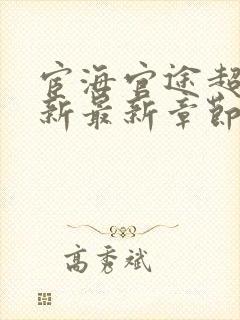 宦海官途超
新最新章節
高秀斌